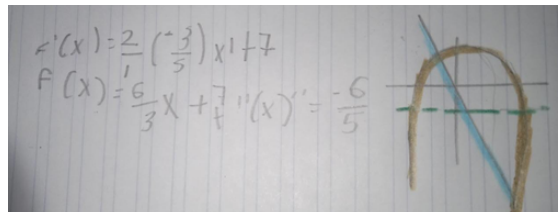 F'(x) = 2/1 (-3/5) x¹ + 7
f'(x) = 6/3 x + 7 f''(x)'' = -6/5